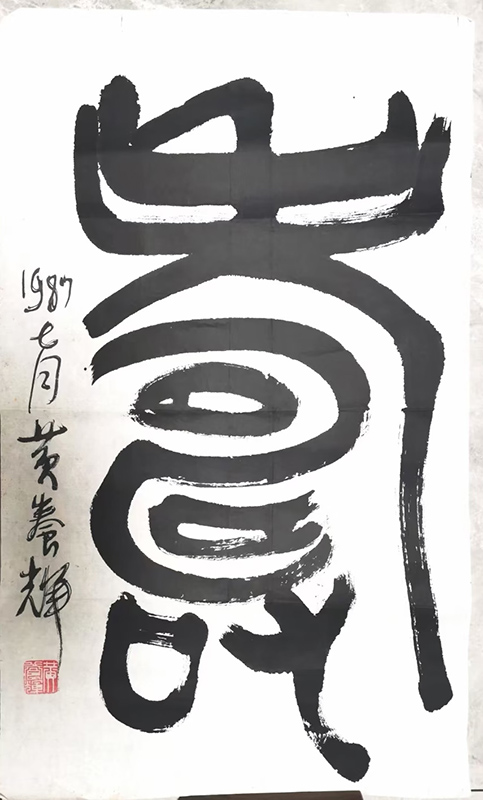 壽
1987
七月
黄養輝